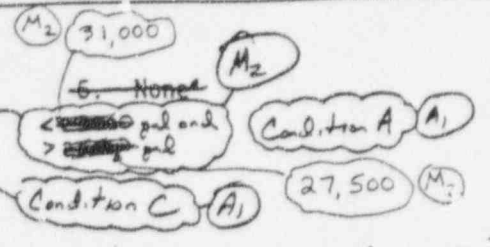 M2 31,000
6. None M2
< gal and
> gal
Condition A A1
27,500 M2
Condition C A1